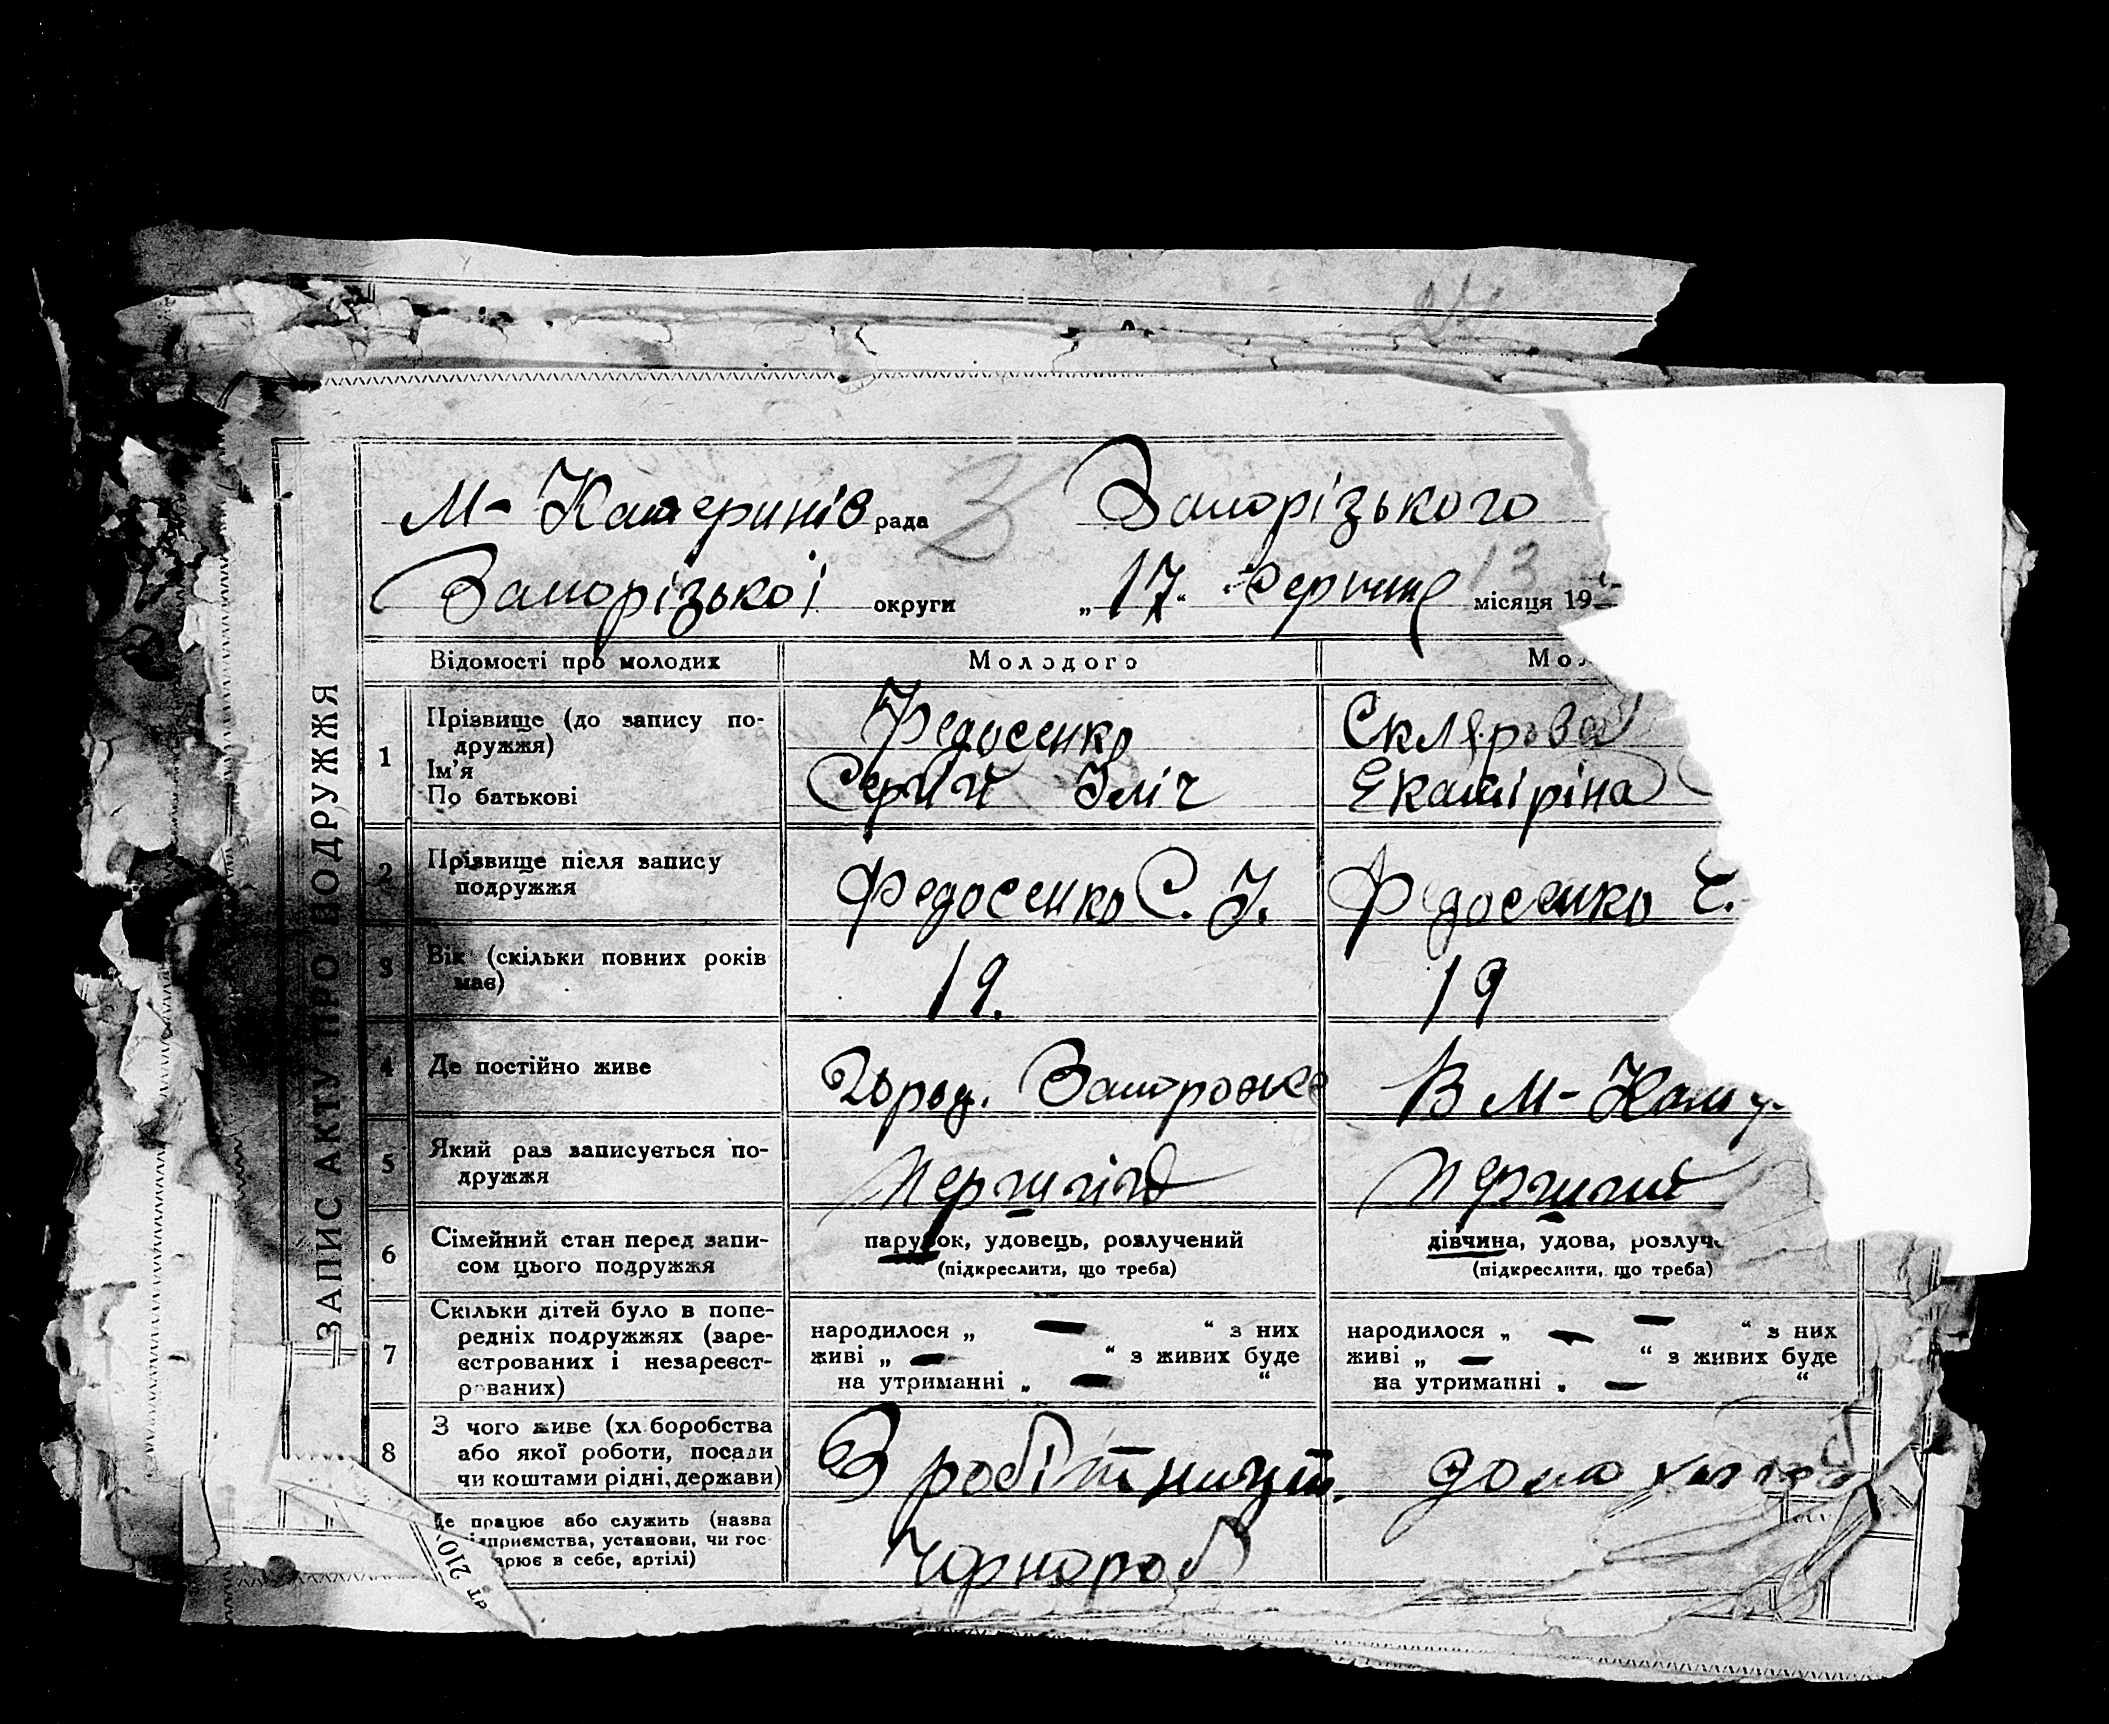 ЗАПИС АКТУ ПРО ПОДРУЖЖЯ
М- Катеринів рада З Запорізького
Запорізької округи „17“ Серпня 13 місяця 19
Відомості про молодих Молодого Мол
1 Прізвище (до запису по-
дружжя)
Ім'я
По батькові
Федосенко
Сергій Іліч
Склярова
Екатіріна
2 Прізвище після запису
подружжя
Федосенко С. І. Федосенко Є.
3 Вік (скільки повних років
має)
19. 19
4 Де постійно живе Город. Запорожже В М-Кате
5 Який раз записується по-
дружжя
Перший Перший
6 Сімейний стан перед запи-
сом цього подружжя
парубок, удовець, розлучений
(підкреслити, що треба)
дівчина, удова, розлуч
(підкреслити, що треба)
7 Скільки дітей було в попе-
редніх подружжях (заре-
єстрованих і незареєст-
рованих)
народилося „ — “ з них
живі „ — “ з живих буде
на утриманні „ — “
народилося „ — — “ з них
живі „ — “ з живих буде
на утриманні „ — “
8 З чого живе (хліборобства
або якої роботи, посади
чи коштами рідні, держави)
З робітниц дома
Де працює або служить (назва
підприємства, установи, чи гос-
арює в себе, артілі)
Чорнороб
210